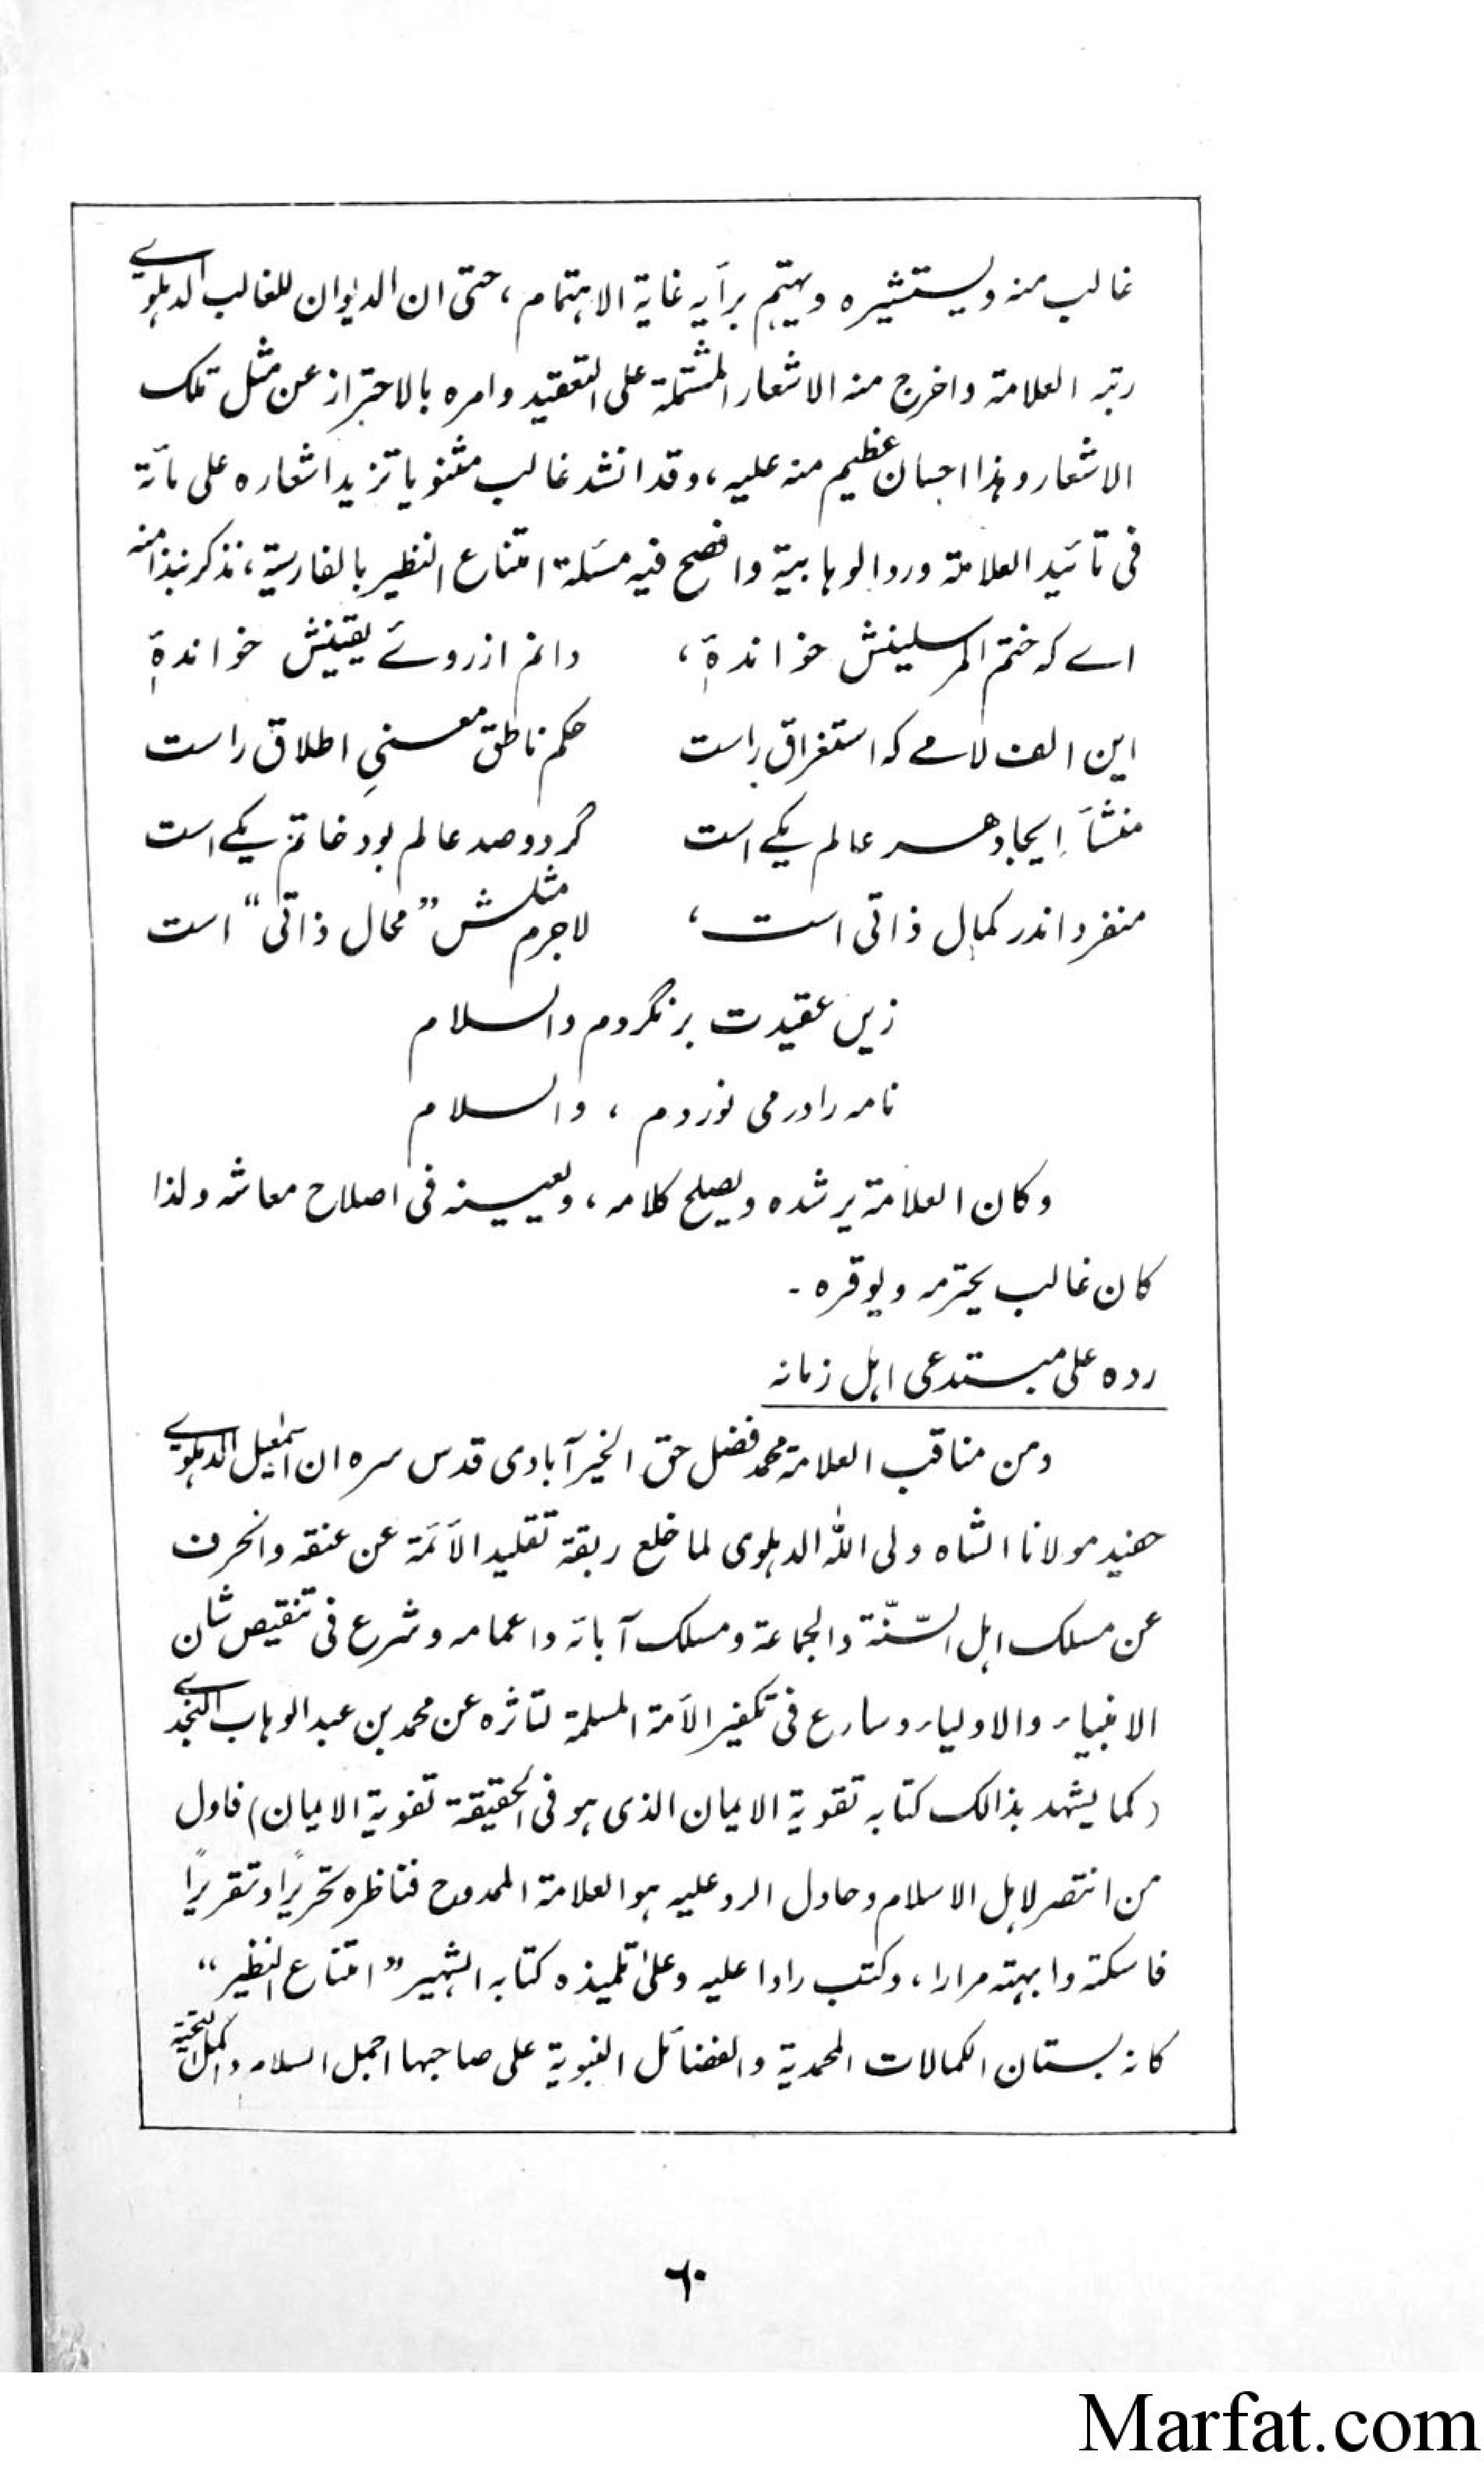 غالب منه ويستشيره ويهتم برأيه غاية الاهتمام، حتى ان الديوان للغالب الدهلوی
رتبه العلامة واخرج منه الاشعار المشتملة على التعقيد وامره بالاحتراز عن مثل تلك
الاشعار وهذا احسان عظيم منه عليه، وقد انشد غالب مثنويا تزيد اشعاره على مائة
فى تائيد العلامة ورد الوهابية وافصح فيه مسئلة امتناع النظير بالفارسية، نذكر نبذا منه
اے کہ ختم المرسلینش خواندۂ، دانم از روئے یقینش خواندۂ
این الف لامے کہ استغراق راست حکم ناطق معنیِ اطلاق راست
منشأِ ایجاد هر عالم یکے است گر دو صد عالم بود خاتم یکے است
منفرد اندر کمال ذاتی است، لاجرم مثلش "محال ذاتی" است
زیں عقیدت برنگردم والسلام
نامہ را در می نوردم، والسلام
وكان العلامة يرشده ويصلح كلامه، ويعينه فى اصلاح معاشه ولذا
كان غالب يحترمه ويوقره۔
رده على مبتدعى اهل زمانه
ومن مناقب العلامة محمد فضل حق الخيرآبادى قدس سره ان اسمٰعيل الدهلوی
حفيد مولانا الشاه ولى الله الدهلوى لما خلع ربقة تقليد الأئمة عن عنقه وانحرف
عن مسلك اهل السّنّة والجماعة ومسلك آبائه واعمامه وشرع فى تنقيص شان
الانبياء والاولياء وسارع فى تكفير الأمة المسلمة لتأثره عن محمد بن عبد الوهاب النجدی
(كما يشهد بذالك كتابه تقوية الايمان الذى هو فى الحقيقة تفوية الايمان) فاول
من انتصر لاهل الاسلام وحاول الرد عليه هو العلامة الممدوح فناظره تحريرًا وتقريرًا
فاسكته وابهته مرارا، وكتب رادا عليه وعلىٰ تلميذه كتابه الشهير "امتناع النظير"
كانه بستان الكمالات المحمدية والفضائل النبوية على صاحبها اجمل السلام واكمل التحية
٦٠
Marfat.com